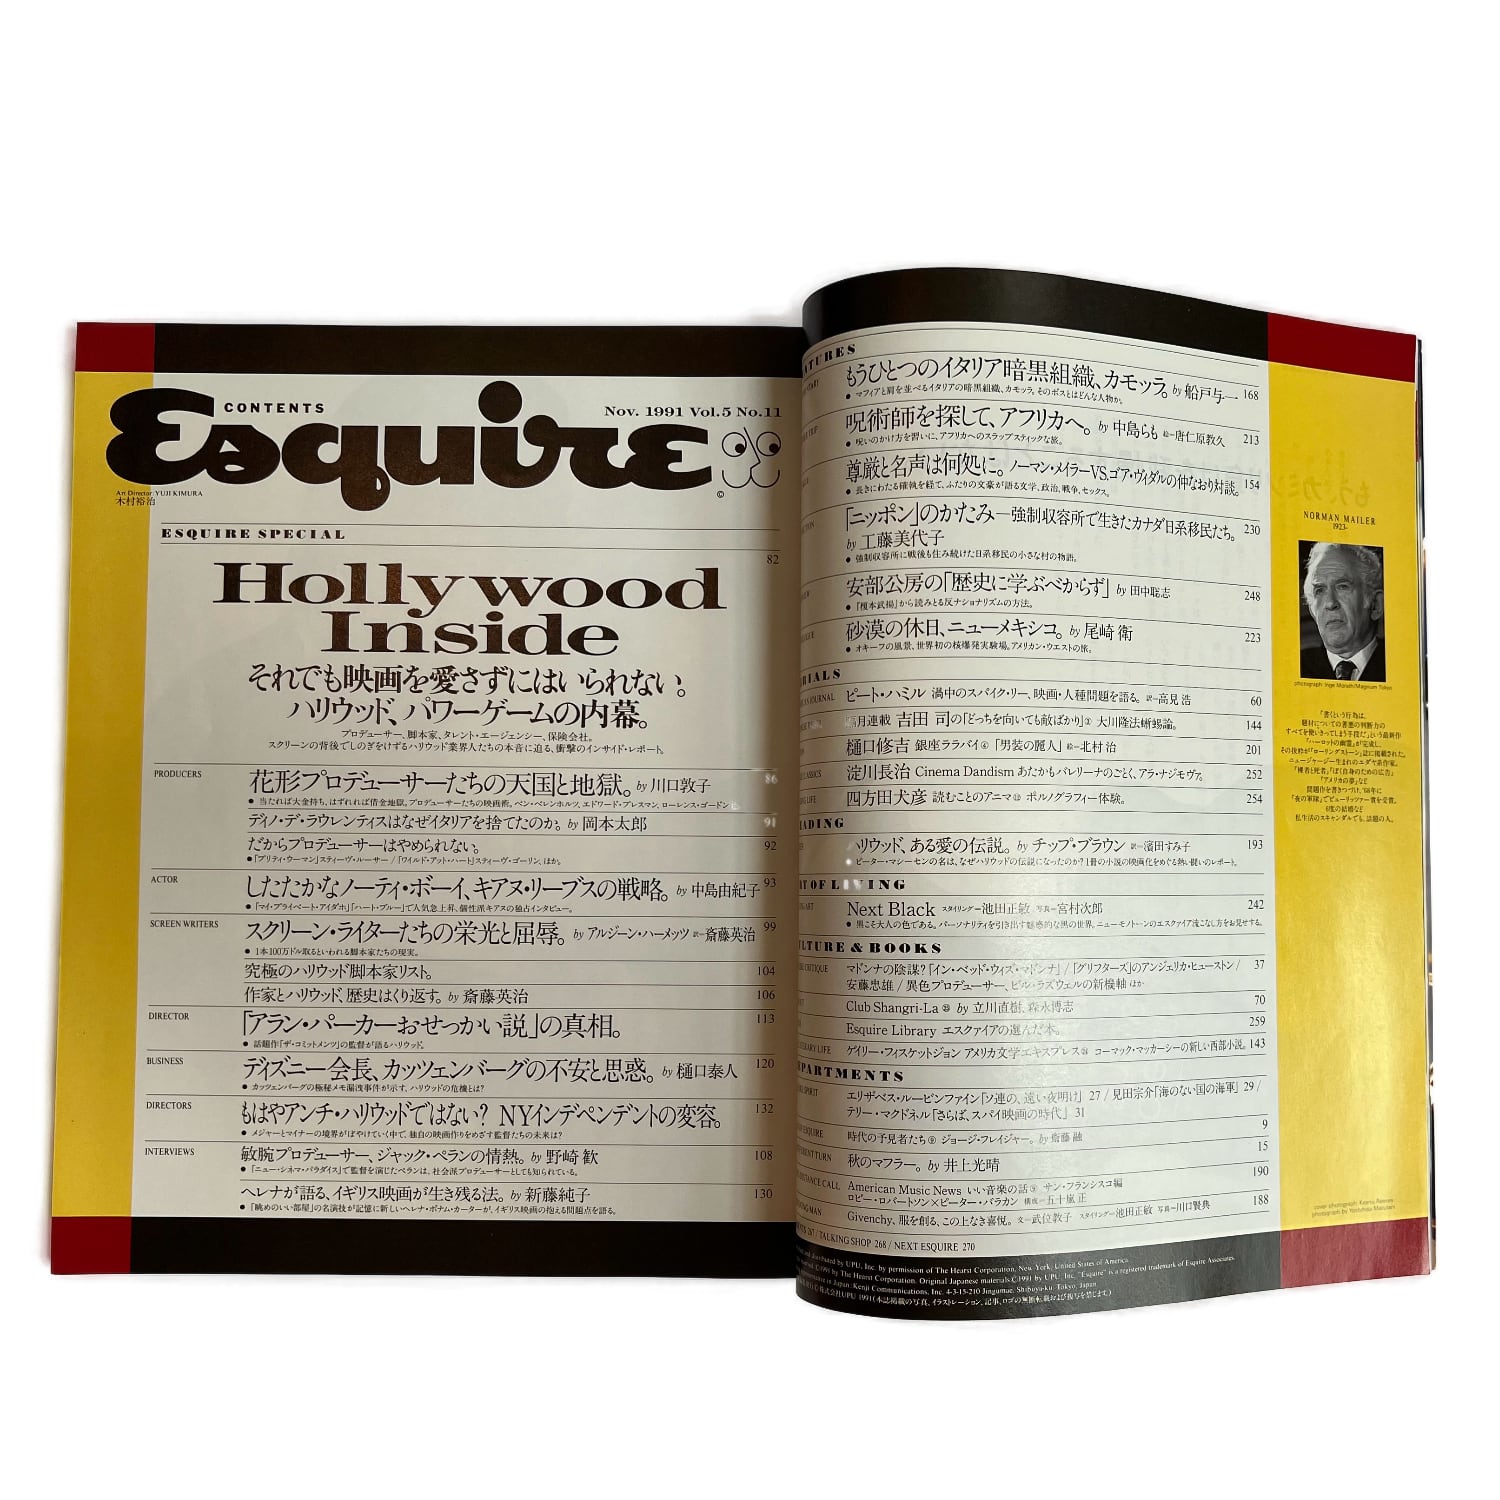 CONTENTS
Nov. 1991 Vol.5 No.11
Esquire
©
Art Director: YUJI KIMURA
木村裕治
ESQUIRE SPECIAL
82
Hollywood
Inside
それでも映画を愛さずにはいられない。
ハリウッド、パワーゲームの内幕。
プロデューサー、脚本家、タレント・エージェンシー、保険会社。
スクリーンの背後でしのぎをけずるハリウッド業界人たちの本音に迫る、衝撃のインサイド・レポート。
PRODUCERS
花形プロデューサーたちの天国と地獄。by 川口敦子 86
● 当たれば大金持ち、はずれれば借金地獄。プロデューサーたちの映画術。ベン・ベレンホルツ、エドワード・プレスマン、ローレンス・ゴードン
ディノ・デ・ラウレンティスはなぜイタリアを捨てたのか。by 岡本太郎 91
だからプロデューサーはやめられない。 92
●「プリティ・ウーマン」スティーヴ・ルーサー／「ワイルド・アット・ハート」スティーヴ・ゴーリン、ほか。
ACTOR
したたかなノーティ・ボーイ、キアヌ・リーブスの戦略。by 中島由紀子 93
●「マイ・プライベート・アイダホ」「ハート・ブルー」で人気急上昇、個性派キアヌの独占インタビュー。
SCREEN WRITERS
スクリーン・ライターたちの栄光と屈辱。by アルジーン・ハーメッツ 訳=斎藤英治 99
● 1本100万ドル取るといわれる脚本家たちの現実。
究極のハリウッド脚本家リスト。 104
作家とハリウッド、歴史はくり返す。by 斎藤英治 106
DIRECTOR
「アラン・パーカーおせっかい説」の真相。 113
● 話題作「ザ・コミットメンツ」の監督が語るハリウッド。
BUSINESS
ディズニー会長、カッツェンバーグの不安と思惑。by 樋口泰人 120
● カッツェンバーグの極秘メモ漏洩事件が示す、ハリウッドの危機とは?
DIRECTORS
もはやアンチ・ハリウッドではない? NYインデペンデントの変容。 132
● メジャーとマイナーの境界がぼやけていく中で、独自の映画作りをめざす監督たちの未来は?
INTERVIEWS
敏腕プロデューサー、ジャック・ペランの情熱。by 野崎 歓 108
●「ニュー・シネマ・パラダイス」で監督を演じたペランは、社会派プロデューサーとしても知られている。
ヘレナが語る、イギリス映画が生き残る法。by 新藤純子 130
●「眺めのいい部屋」の名演技が記憶に新しいヘレナ・ボナム・カーターが、イギリス映画の抱える問題点を語る。
もうひとつのイタリア暗黒組織、カモッラ。by 船戸与一 168
● マフィアと肩を並べるイタリアの暗黒組織、カモッラ。そのボスとはどんな人物か。
呪術師を探して、アフリカへ。by 中島らも 絵=唐仁原教久 213
● 呪いのかけ方を習いに、アフリカへのスラップスティックな旅。
尊厳と名声は何処に。ノーマン・メイラーVS.ゴア・ヴィダルの仲なおり対談。 154
● 長きにわたる確執を経て、ふたりの文豪が語る文学、政治、戦争、セックス。
「ニッポン」のかたみ—強制収容所で生きたカナダ日系移民たち。 230
by 工藤美代子
● 強制収容所に戦後も住み続けた日系移民の小さな村の物語。
安部公房の「歴史に学ぶべからず」by 田中聡志 248
●「榎本武揚」から読みとる反ナショナリズムの方法。
砂漠の休日、ニューメキシコ。by 尾崎 衛 223
● オキーフの風景、世界初の核爆発実験場。アメリカン・ウエストの旅。
JOURNAL
ピート・ハミル 渦中のスパイク・リー、映画・人種問題を語る。訳=高見 浩 60
隔月連載 吉田 司の「どっちを向いても敵ばかり」② 大川隆法蜥蜴論。 144
樋口修吉 銀座ララバイ④「男装の麗人」絵=北村 治 201
CLASSICS
淀川長治 Cinema Dandism あたかもバレリーナのごとく、アラ・ナジモヴァ。 252
LIFE
四方田犬彦 読むことのアニマ⑬ ポルノグラフィー体験。 254
ハリウッド、ある愛の伝説。by チップ・ブラウン 訳=濱田すみ子 193
● ピーター・マシーセンの名は、なぜハリウッドの伝説になったのか? 1冊の小説の映画化をめぐる熱い闘いのレポート。
ART OF LIVING
Next Black スタイリング=池田正敏 写真=宮村次郎 242
● 黒こそ大人の色である。パーソナリティを引き出す魅惑的な黒の世界。ニューモートーンのエスクァイア流こなし方をお見せする。
CULTURE & BOOKS
CRITIQUE
マドンナの陰謀?「イン・ベッド・ウィズ・マドンナ」/「グリフターズ」のアンジェリカ・ヒューストン/ 37
安藤忠雄/異色プロデューサー、ビル・ラズウェルの新機軸 ほか
Club Shangri-La by 立川直樹、森永博志 70
Esquire Library エスクァイアの選んだ本。 259
LITERARY LIFE
ゲイリー・フィスケットジョン アメリカ文学エキスプレス コーマック・マッカーシーの新しい西部小説。 143
DEPARTMENTS
SPIRIT
エリザベス・ルービンファイン「ソ連の、遠い夜明け」27/見田宗介「海のない国の海軍」29/
テリー・マクドネル「さらば、スパイ映画の時代」31
ESQUIRE
時代の予見者たち⑨ ジョージ・フレイジャー。by 斎藤 融 9
TURN
秋のマフラー。by 井上光晴 15
DISTANCE CALL
American Music News いい音楽の話⑨ サン・フランシスコ編 190
ロビー・ロバートソン×ピーター・バラカン 構成=五十嵐 正
MAN
Givenchy、服を創る、この上なき喜悦。文=武位教子 スタイリング=池田正敏 写真=川口賢典 188
267 / TALKING SHOP 268 / NEXT ESQUIRE 270
distributed by UPU, Inc. by permission of The Hearst Corporation, New York, United States of America.
©1991 by The Hearst Corporation. Original Japanese materials ©1991 by UPU, Inc. "Esquire" is a registered trademark of Esquire Associates.
in Japan: Kenji Communications, Inc. 4-3-15-210 Jingumae, Shibuya-ku, Tokyo, Japan
©株式会社UPU 1991(本誌掲載の写真、イラストレーション、記事、ロゴの無断転載および複写を禁じます。)
NORMAN MAILER
1923-
photograph: Inge Morath/Magnum Tokyo
「書くという行為は、
題材についての書墨の判断力の
すべてを使いきってしまう手段だ」という最新作
「ハーロットの幽霊」が完成し、
その抜粋が「ローリングストーン」誌に掲載された。
ニュージャージー生まれのユダヤ系作家。
「裸者と死者」「ぼく自身のための広告」
「アメリカの夢」など
問題作を書きつづけ、'68年に
「夜の軍隊」でピューリッツァー賞を受賞。
6度の結婚など
私生活のスキャンダルでも、話題の人。
cover photograph: Keanu Reeves
photograph by Yoshihisa Marutani